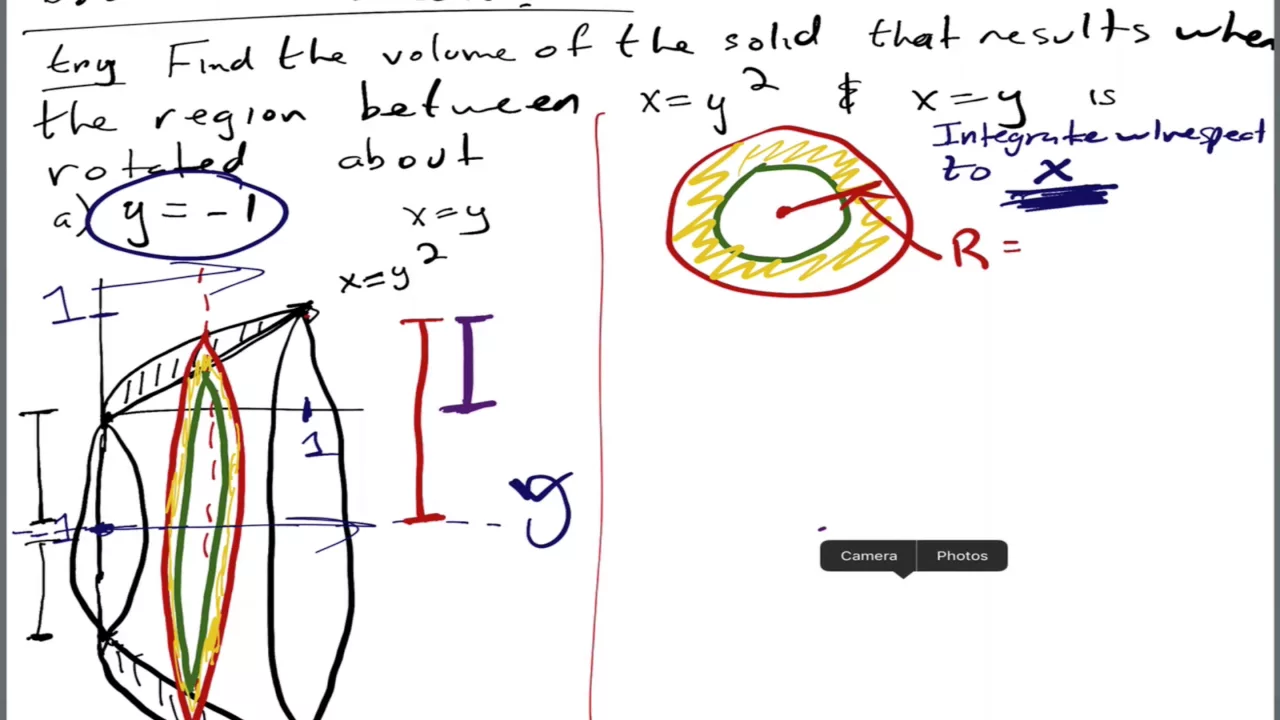 try Find the volume of the solid that results when
the region between x=y² & x=y is
rotated about
Integrate w/respect
to x
a) y = -1
x=y
x=y²
R =
1
1
-1
y
Camera Photos